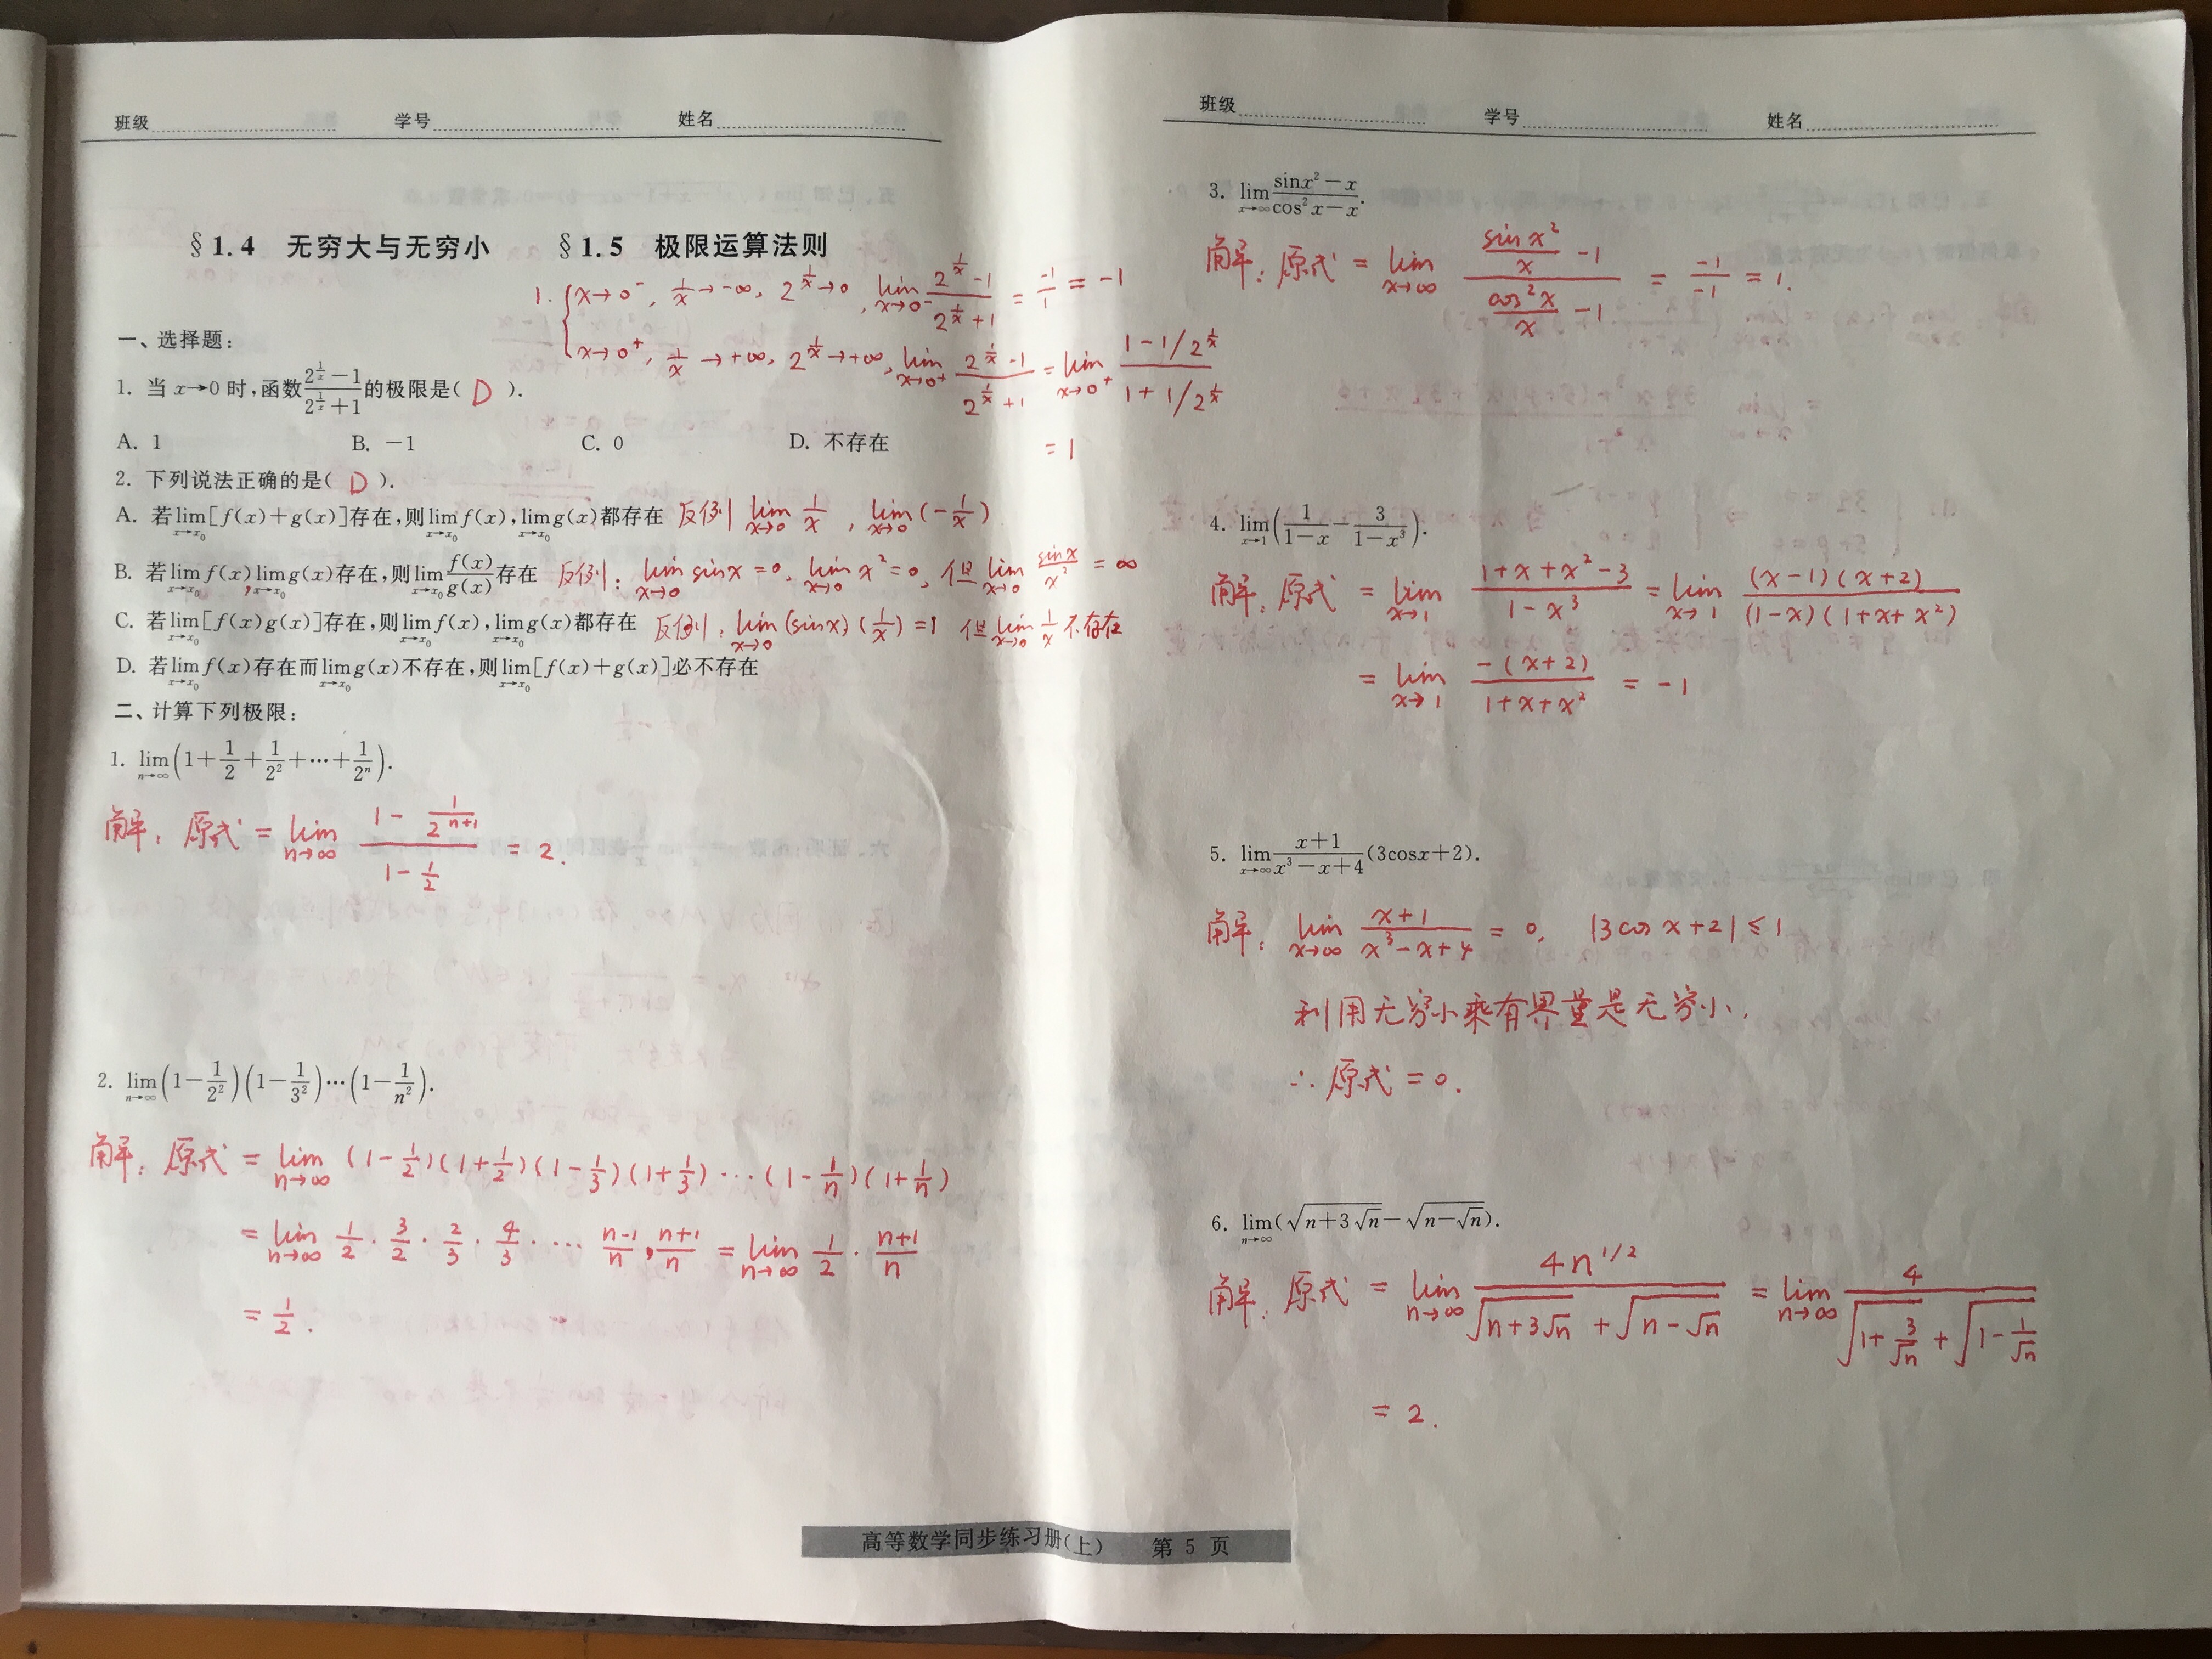 班级 学号 姓名
§1.4 无穷大与无穷小 §1.5 极限运算法则
1. { x→0⁻, 1/x→-∞, 2^(1/x)→0, lim_(x→0⁻) (2^(1/x)-1)/(2^(1/x)+1) = -1/1 = -1
x→0⁺, 1/x→+∞, 2^(1/x)→+∞, lim_(x→0⁺) (2^(1/x)-1)/(2^(1/x)+1) = lim_(x→0⁺) (1-1/2^(1/x))/(1+1/2^(1/x))
= 1
一、选择题:
1. 当 x→0 时,函数 (2^(1/x)-1)/(2^(1/x)+1) 的极限是( D ).
A. 1 B. -1 C. 0 D. 不存在
2. 下列说法正确的是( D ).
A. 若lim_(x→x₀)[f(x)+g(x)]存在,则lim_(x→x₀)f(x),lim_(x→x₀)g(x)都存在 反例 lim_(x→0) 1/x , lim_(x→0) (-1/x)
B. 若lim_(x→x₀)f(x),lim_(x→x₀)g(x)存在,则lim_(x→x₀) f(x)/g(x) 存在 反例: lim_(x→0) sinx=0, lim_(x→0) x²=0, 但 lim_(x→0) sinx/x² = ∞
C. 若lim_(x→x₀)[f(x)g(x)]存在,则lim_(x→x₀)f(x),lim_(x→x₀)g(x)都存在 反例: lim_(x→0) (sinx)(1/x)=1 但 lim_(x→0) 1/x 不存在
D. 若lim_(x→x₀)f(x)存在而lim_(x→x₀)g(x)不存在,则lim_(x→x₀)[f(x)+g(x)]必不存在
二、计算下列极限:
1. lim_(n→∞)(1+1/2+1/2²+⋯+1/2ⁿ).
解: 原式 = lim_(n→∞) (1-1/2^(n+1))/(1-1/2) = 2.
2. lim_(n→∞)(1-1/2²)(1-1/3²)⋯(1-1/n²).
解: 原式 = lim_(n→∞) (1-1/2)(1+1/2)(1-1/3)(1+1/3)⋯(1-1/n)(1+1/n)
= lim_(n→∞) 1/2·3/2·2/3·4/3·⋯ (n-1)/n·(n+1)/n = lim_(n→∞) 1/2·(n+1)/n
= 1/2.
班级 学号 姓名
3. lim_(x→∞) (sinx²-x)/(cos²x-x).
解: 原式 = lim_(x→∞) (sinx²/x -1)/(cos²x/x -1) = -1/-1 = 1.
4. lim_(x→1)(1/(1-x) - 3/(1-x³)).
解: 原式 = lim_(x→1) (1+x+x²-3)/(1-x³) = lim_(x→1) (x-1)(x+2)/((1-x)(1+x+x²))
= lim_(x→1) -(x+2)/(1+x+x²) = -1
5. lim_(x→∞) (x+1)/(x³-x+4) (3cosx+2).
解: lim_(x→∞) (x+1)/(x³-x+4) = 0, |3cosx+2|≤1
利用无穷小乘有界量是无穷小.
∴ 原式 = 0.
6. lim_(n→∞)(√(n+3√n)-√(n-√n)).
解: 原式 = lim_(n→∞) 4n^(1/2)/(√(n+3√n)+√(n-√n)) = lim_(n→∞) 4/(√(1+3/√n)+√(1-1/√n))
= 2.
高等数学同步练习册(上) 第 5 页